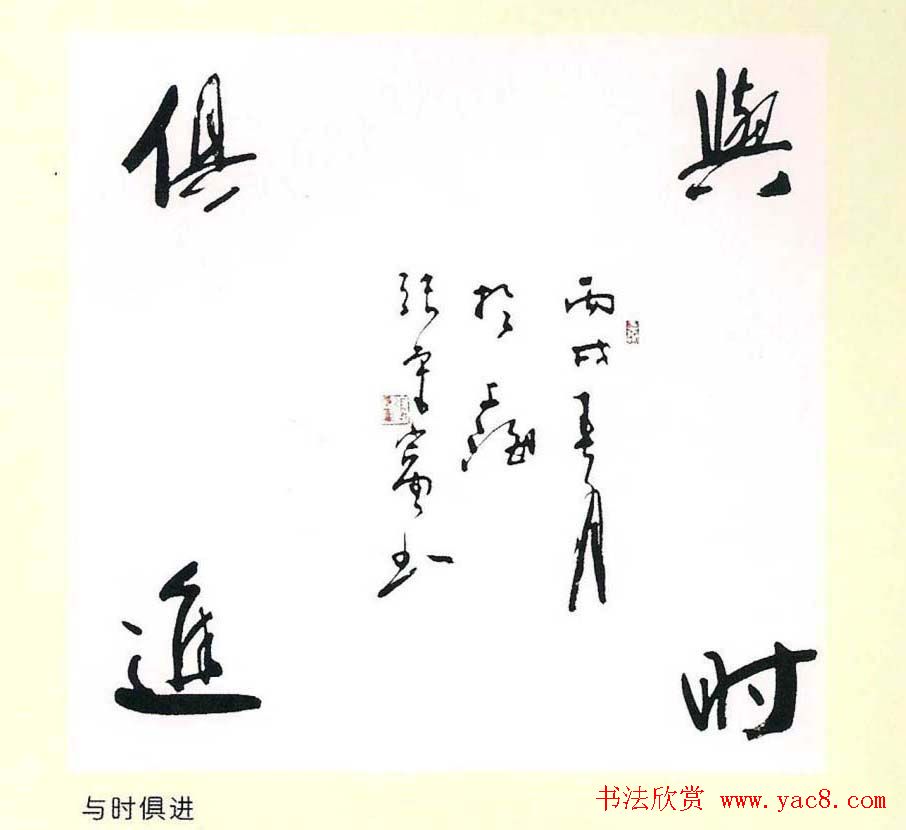 與时
俱進
丙戌春月
於上海
张軍富书
与时俱进
书法欣赏 www.yac8.com